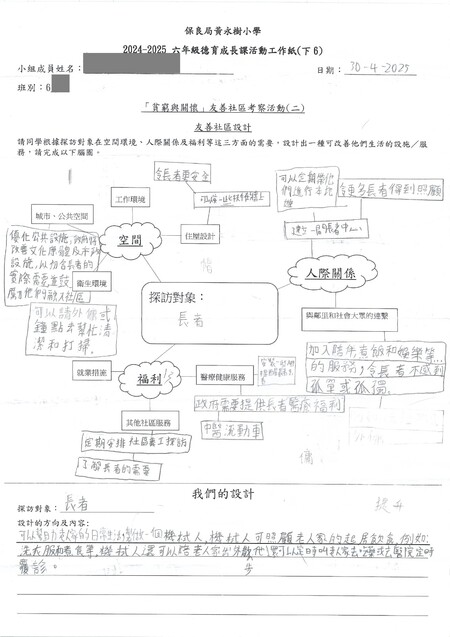 保良局黃永樹小學
2024-2025 六年級德育成長課活動工作紙(下6)
小組成員姓名：
日期： 30-4-2025
班別：6
「貧窮與關懷」友善社區考察活動(二)
友善社區設計
請同學根據探訪對象在空間環境、人際關係及福利等這三方面的需要，設計出一種可改善他們生活的設施／服
務，請完成以下腦圖。
令長者更安全
工作環境
城市、公共空間
空間
住屋設計
優化公共設施，政府
設施，以切合長者的
實際需要並鼓
衛生環境
可以請外傭或
鐘點去幫忙清
潔和打掃。
可以定期幫他
們進行
令更多長者得到照顧
建一個長者中心
人際關係
與鄰里和社會大眾的連繫
加入陪伴者飯和娛樂等...
的服務，令長者不感到
孤單或孤獨。
探訪對象：
長者
就業措施
福利
醫療健康服務
政府需要提供長者醫療福利
中醫流動車
其他社區服務
定期安排社區義工探訪
了解長者的需要
我們的設計
探訪對象： 長者
設計的方向及內容：
可以幫助老人家的日常生活，製做一個機械人，機械人可照顧老人家的起居飲食，例如：
洗衣服和煮食等，機械人還可以陪老人家出外散步，可以定時叫老人家去喝或去醫院定時
覆診。